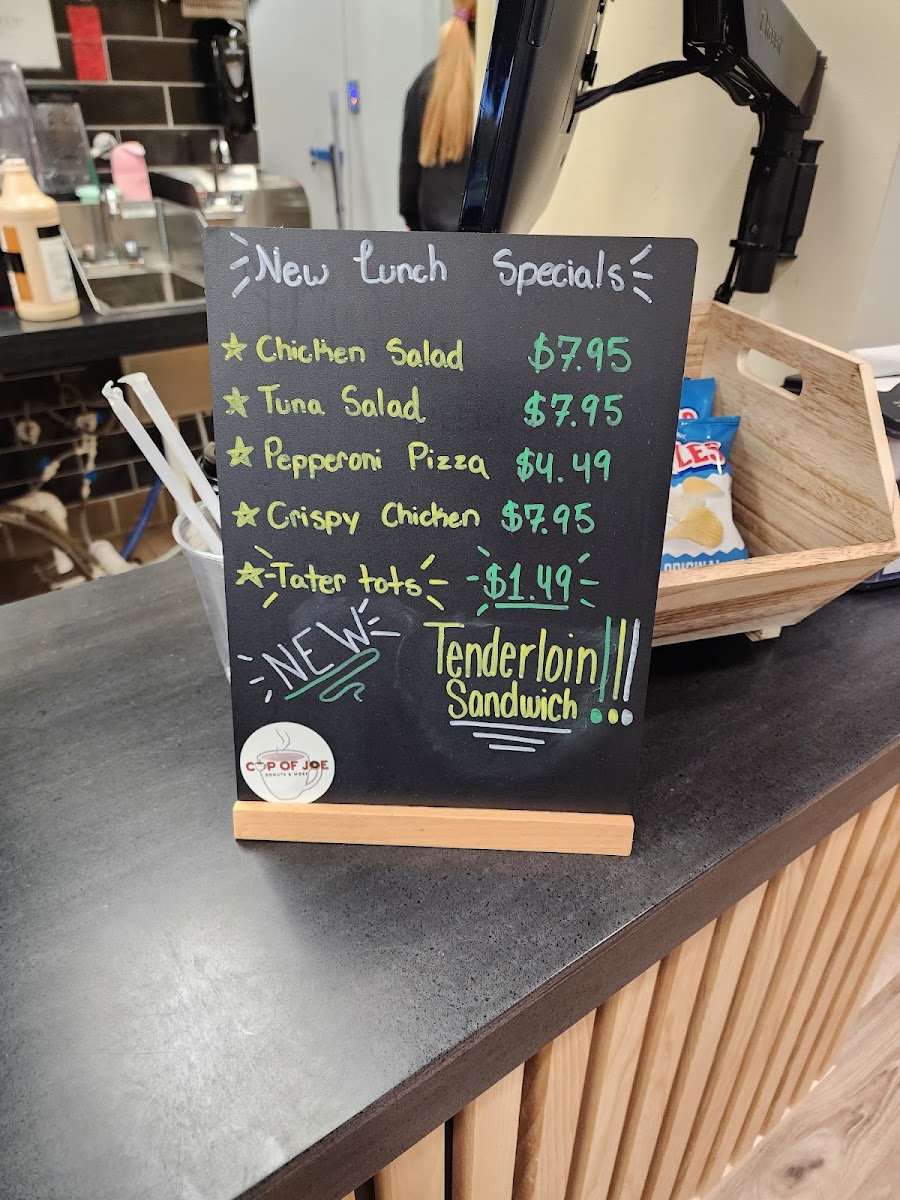 New Lunch Specials
☆ Chicken Salad $7.95
☆ Tuna Salad $7.95
☆ Pepperoni Pizza $4.49
☆ Crispy Chicken $7.95
☆ Tater tots $1.49
NEW
Tenderloin!!!
Sandwich
CUP OF JOE
DONUTS & MORE
LES
ORIGINAL